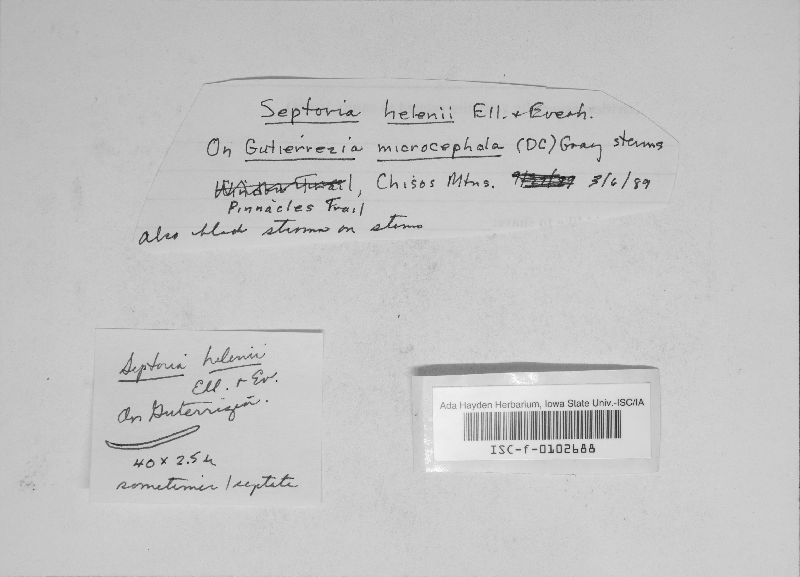 Septoria helenii Ell. & Everh.
On Gutierrezia microcephala (DC) Gray stems
Window Trail, Chisos Mtns. 3/6/89
Pinnacles Trail
also black stroma on stems
Septoria helenii
Ell. & Ev.
On Guterrizia.
40 x 2.5 µ
sometimes 1 septate
Ada Hayden Herbarium, Iowa State Univ.-ISC/IA
ISC-f-0102688